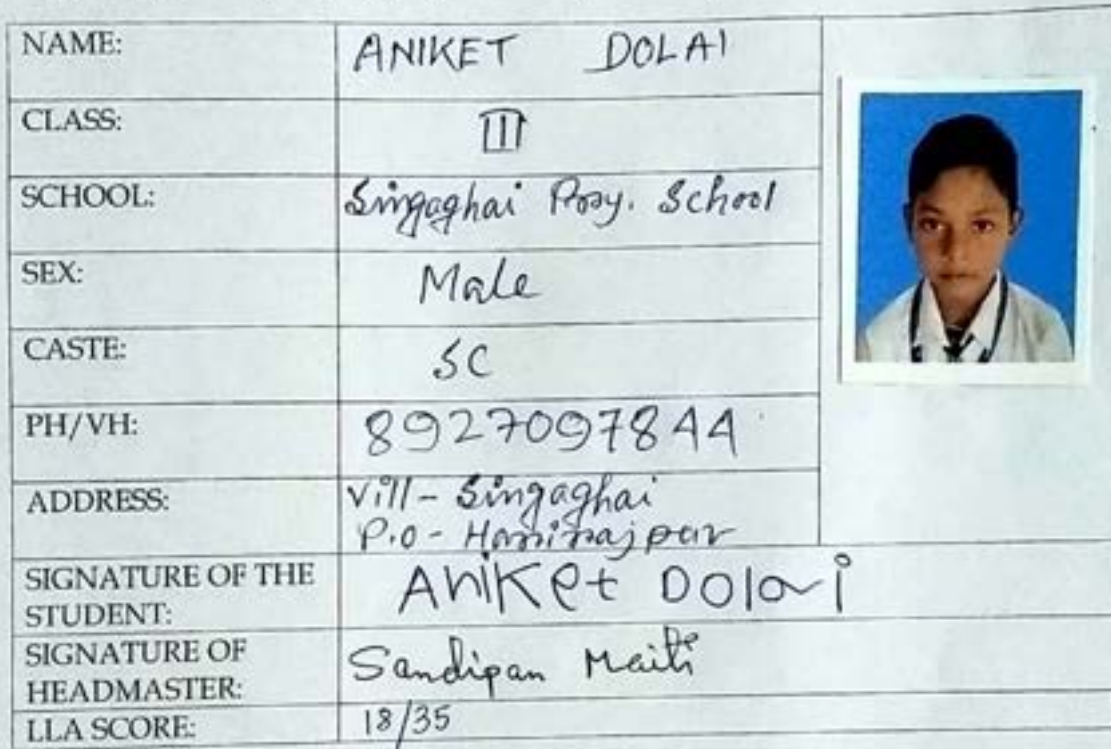 NAME: ANIKET DOLAI
CLASS: III
SCHOOL: Singaghai Pry. School
SEX: Male
CASTE: SC
PH/VH: 8927097844
ADDRESS: Vill - Singaghai
P.O -
SIGNATURE OF THE STUDENT: Aniket Dolai
SIGNATURE OF HEADMASTER: Sandipan Maiti
LLA SCORE: 18/35